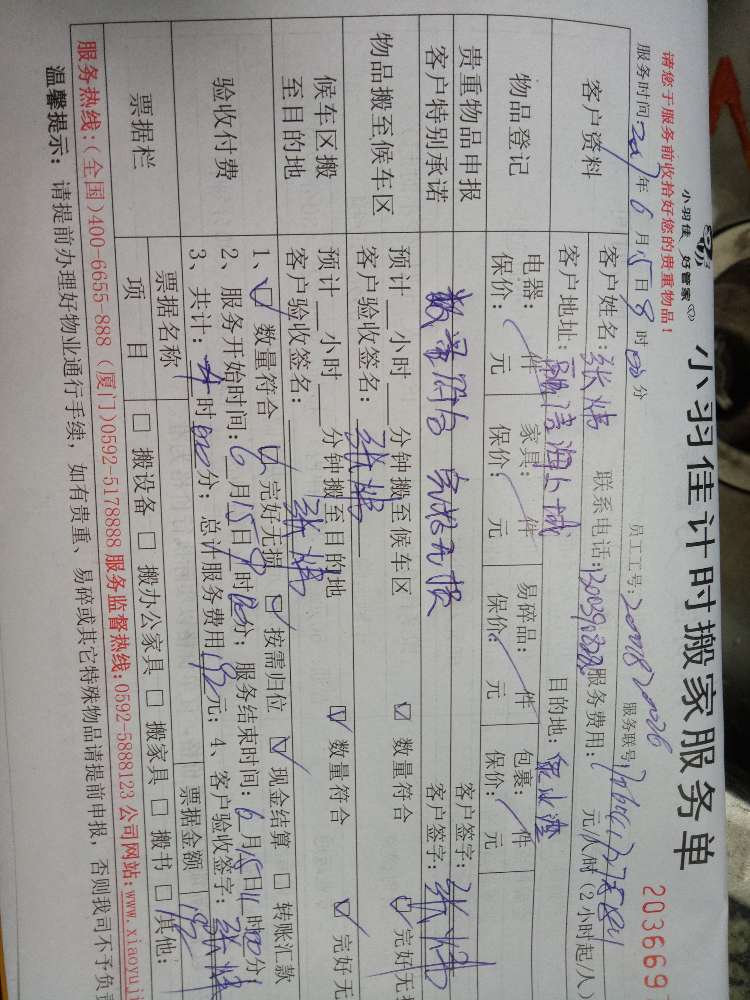 小羽佳计时搬家服务单
203669
小羽佳 好管家
请您于服务前收拾好您的贵重物品！
员工工号： 服务联号：
服务时间：2017年6月15日8时00分
客户资料
客户姓名：张炜 联系电话： 服务费用： 元/人/时（2小时起/人）
客户地址： 目的地：
物品登记
电器： 件 家具： 件 易碎品： 件 包裹： 件
保价： 元 保价： 元 保价： 元 保价： 元
贵重物品申报 客户签字：
客户特别承诺 完好无损 客户签字：张炜
物品搬至候车区
预计 小时 分钟搬至候车区 ☑ 数量符合 ☑ 完好无
客户验收签名：张炜
候车区搬至目的地
预计 小时 分钟搬至目的地 ☑ 数量符合 ☑ 完好无
客户验收签名：张炜
验收付费
1、☑ 数量符合 ☑ 完好无损 ☑ 按需归位 ☑ 现金结算 □ 转账汇款
2、服务开始时间：6月15日 时 分；服务结束时间：6月15日11时00分；
3、共计： 时 分；总计服务费用 元；4、客户验收签字：张炜
票据栏
票据名称 票据金额
项目 □ 搬设备 □ 搬办公家具 □ 搬家具 □ 搬书 □ 其他：
服务热线：（全国）400-6655-888（厦门）0592-5178888 服务监督热线：0592-5888123 公司网站：www.xiaoyuj
温馨提示： 请提前办理好物业通行手续，如有贵重、易碎或其它特殊物品请提前申报，否则我司不予负